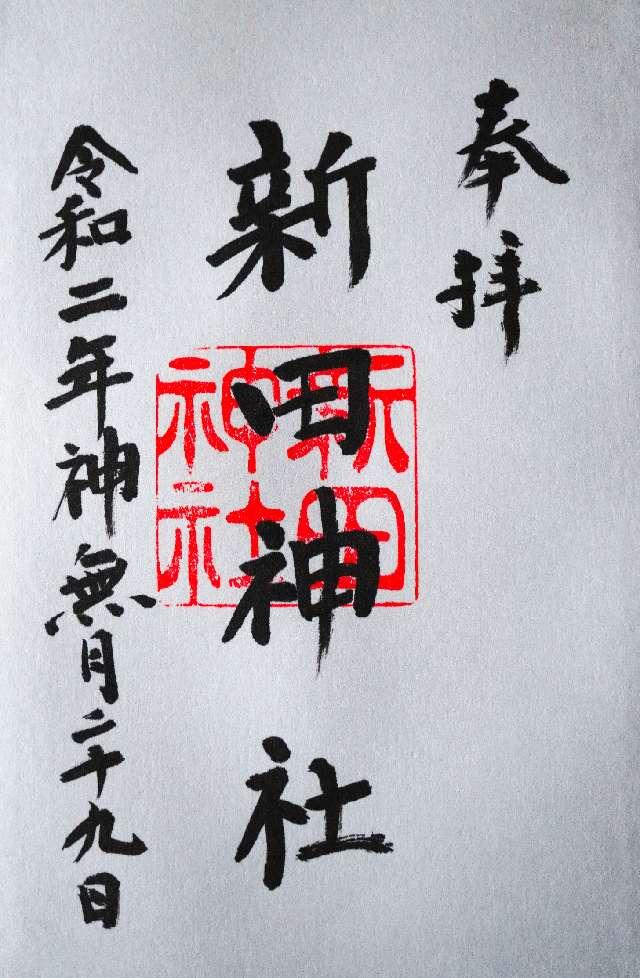 奉拝
新田神社
新田神社
令和二年神無月二十九日